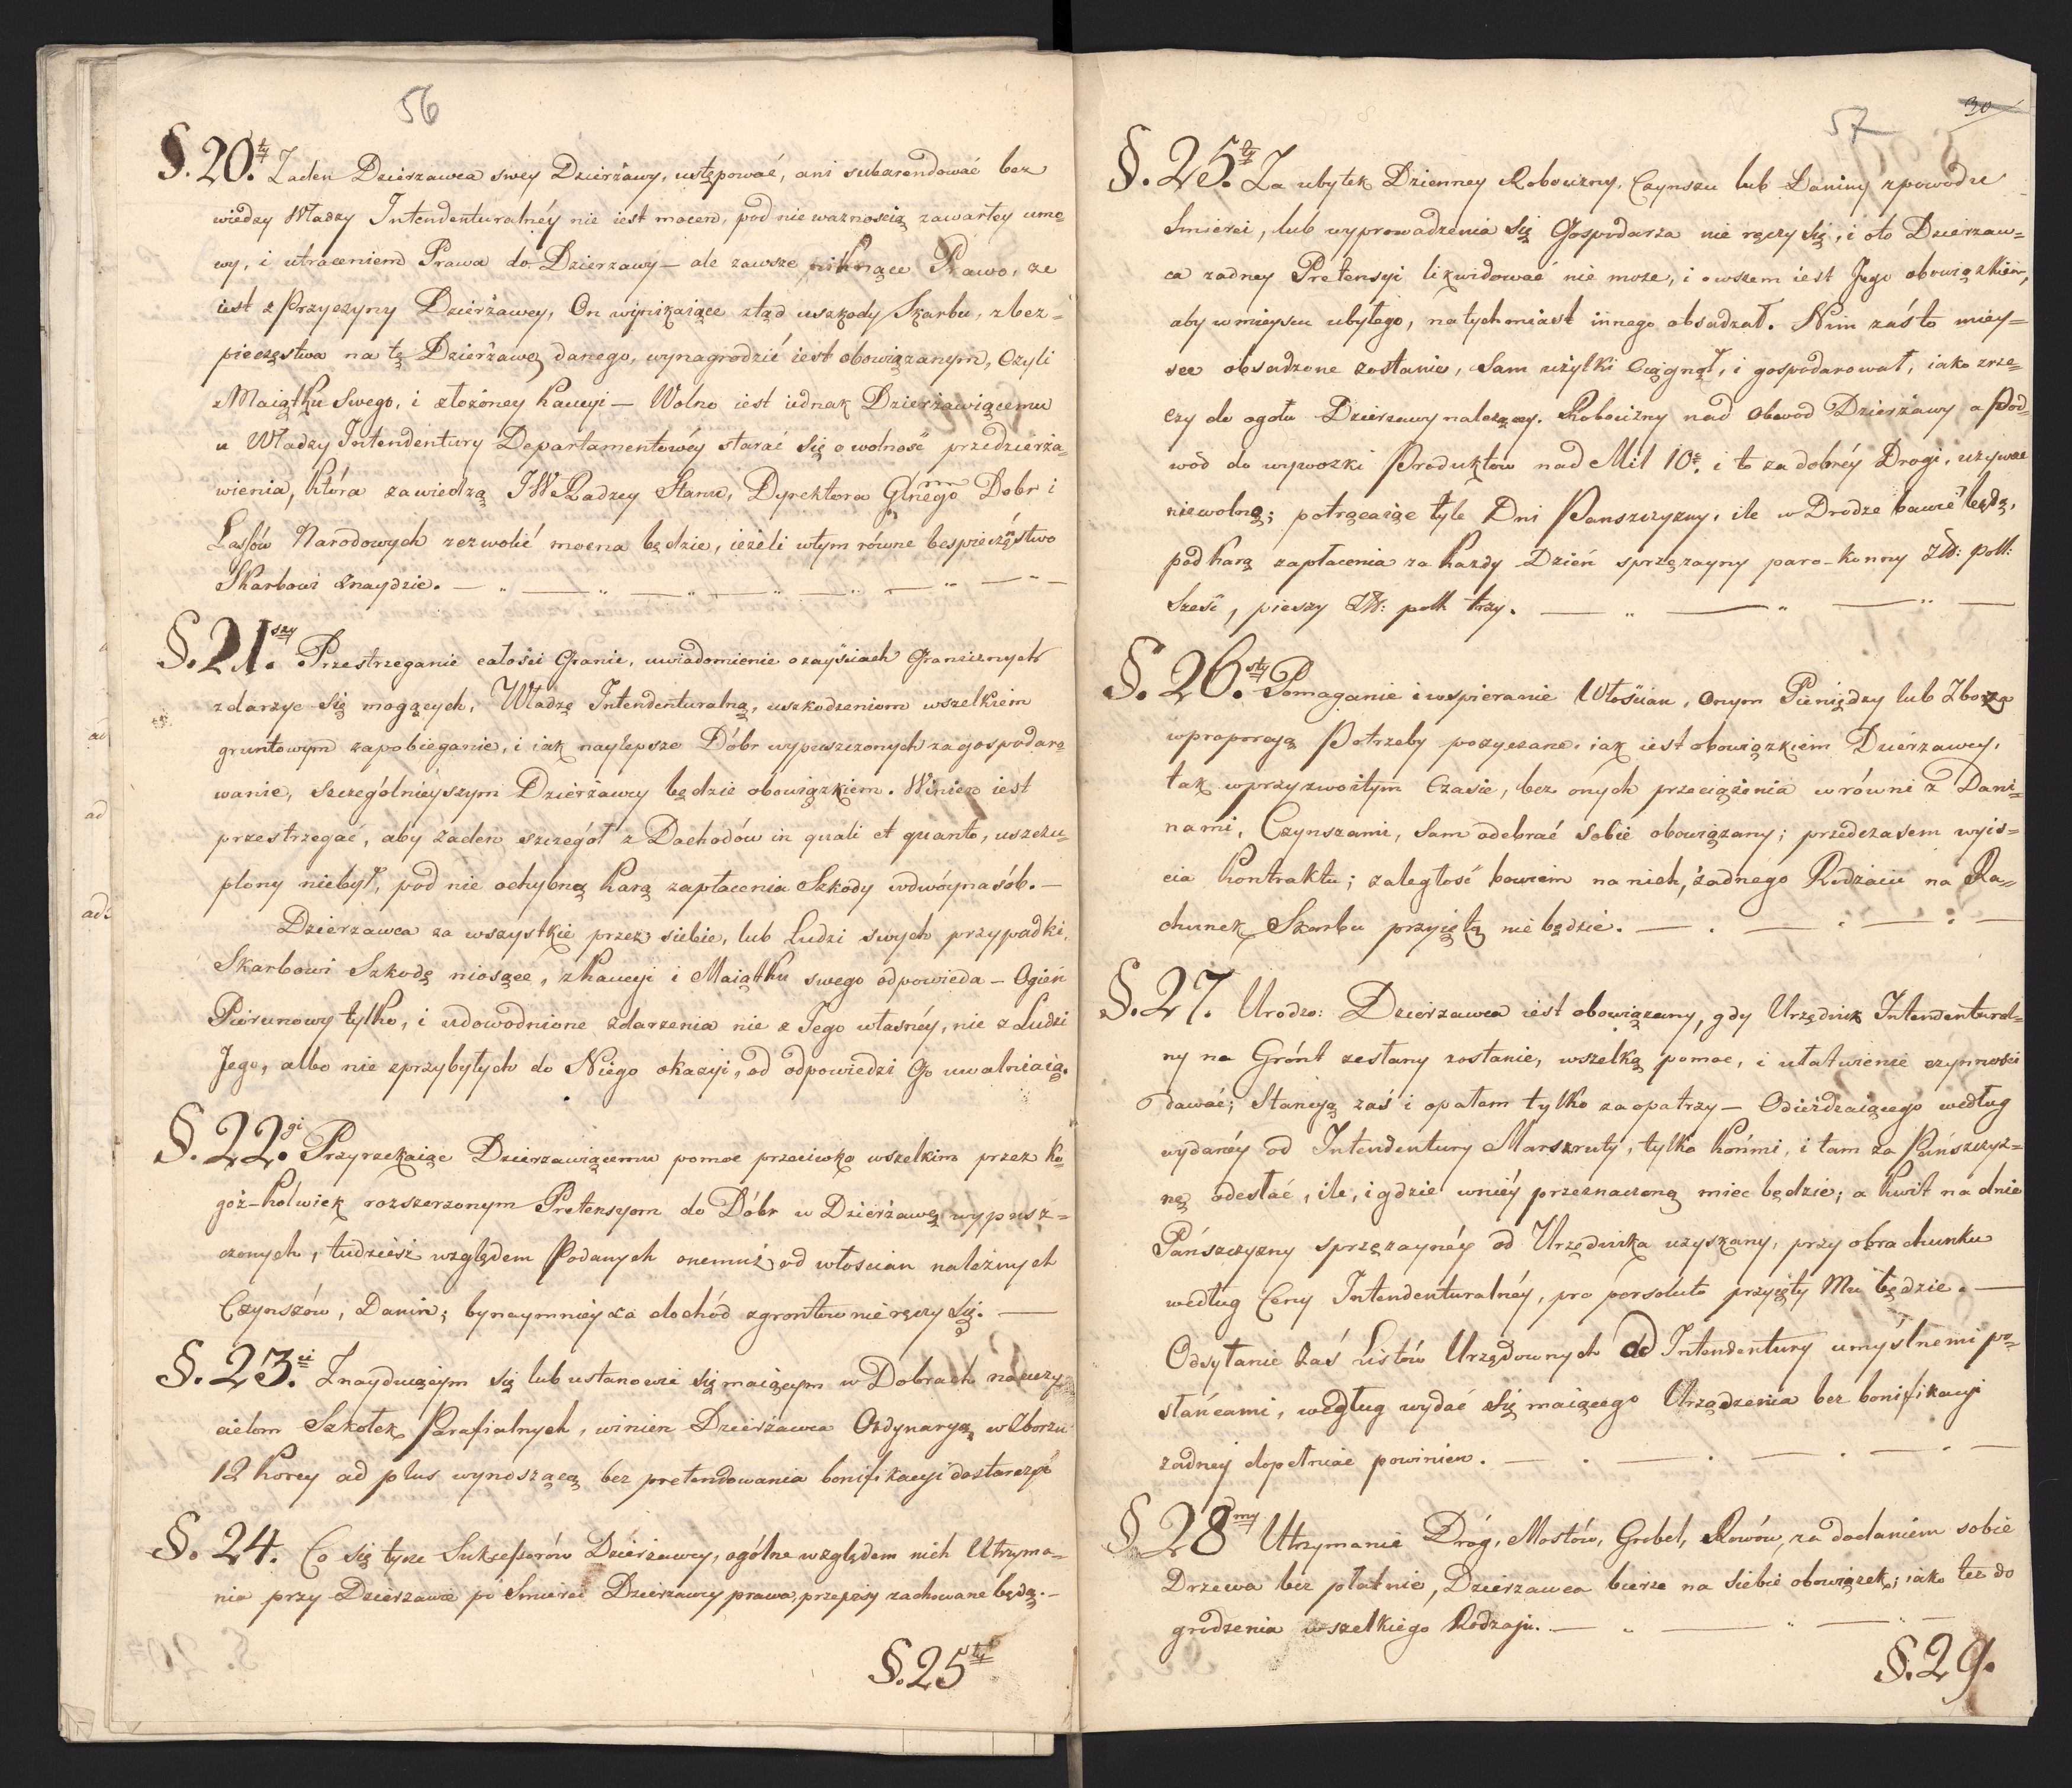 56
§. 20.ty Zaden Dzierzawca swey Dzierżawy, ustępować, ani subarendować bez
wiedzy Władzy Intendenturalnéy nie iest mocen, pod nie ważnością zawartey umo=
wy, i utraceniem Prawa do Dzierzawy — ale zawsze Prawo, ze
iest z Przyczyny Dzierżawcy, On wynikaiące ztąd uszkody Skarbu, z bez=
pieczęstwa na tę Dzierżawę danego, wynagrodzić iest obowiązanym, Czyli
z Maiątku Swego, i złożoney Kaucyi — Wolno iest iednak Dzierżawiącemu
u Władzy Intendentury Departamentowéy starać się o wolność przedzierża=
wienia, która zawiedzą JW Radzcy Stanu, Dyrektora Głnego Dobr i
Lassów Narodowych zezwolić mocna będzie, ieżeli wtym równe bespieczęstwo
Skarbowi znaydzie. — „ — „ — „ — „ — „ —
§. 21.szy Przestrzeganie całości Granic, uwiadomienie o zayściach Granicznych
zdarzyc się mogących, Władzę Intendenturalną, uszkodzeniom wszelkiem
gruntowym zapobieganie, i iak naylepsze Dóbr wypuszczonych zagospodaro=
wanie, szczególnieyszym Dzierżawcy będzie obowiązkiem. Winien iest
przestrzegać, aby żaden szczegół z Dochodów in quali et quanto, uszczu=
plony niebył, pod nie ochybną karą zapłacenia Szkody wdwóynasób. —
Dzierzawca za wszystkie przez siebie, lub Ludzi swych przypadki,
Skarbowi Szkodę niosące, z Kaucyi i Maiątku swego odpowieda — Ogień
Piorunowy tylko, i udowodnione zdarzenia nie z Jego własnéy, nie z Ludzi
Jego, albo nie zprzybyłych do Niego okazyi, od odpowiedzi Go uwalniaią.
§. 22.gi Przyrzekaiąc Dzierzawiącemu pomoc przeciwko wszelkim przez ko=
goż-kolwiek rozszerzonym Pretensyom do Dóbr w Dzierżawę wypusz=
czonych, tudzież względem Podanych onemuż od włościan należnych
Czynszów, Danin; bynaymniey za dochód z grontow nie ręczy się. —
§. 23.ci Znayduiącym się lub ustanowić się maiącym w Dobrach nauczy
cielom Szkołek Parafialnych, winien Dzierżawca Ordynaryą w Zborzu
12 Korcy ad plus wynoszącą bez pretendowania bonifikacyi dostarczyć
§. 24. Co się tycze Sukcessorów Dzierżawcy, ogólne względem nich Utrzyma=
nia przy Dzierzawie po Smierci Dzierżawcy prawa, przepisy zachowane będą. —
§. 25ty
57
30
§. 25.ty Za ubytek Dzienney Robocizny, Czynszu lub Daniny z powodu
Smierci, lub wyprowadzenia się Gospodarza nie ręczy się, i oto Dzierzaw=
ca zadney Pretensyi likwidować nie moze, i owszem iest Jego obowiązkiem,
aby w mieyscu ubyłego, natychmiast innego obsadzał. Nim zaś to miey=
sce obsadzone zostanie, Sam użytki Ciągnął, i gospodarował, iako rze=
czy do ogołu Dzierzawy nalezącey. Robocizny nad Obwod Dzierżawy a Pod=
wod do wywozki Produktow nad Mil 10.ć i to za dobréy Drogi, uzywac
niewolno; potrącaiąc tyle Dni Panszczyzny, ile w Drodze bawić będą,
pod karą zapłacenia za każdy Dzień sprzęzayny paro-konny Zł: poll:
Sześć, pieszy Zł: poll trzy. — „ — „ — „ —
§. 26.sty Pomaganie i wspieranie Włościan, Onym Pieniędzy lub Zboża
wproporcyą Potrzeby pozyczane, iak iest obowiązkiem Dzierżawcy,
tak wprzyzwoitym Czasie, bez onych przeciążenia wrówni z Dani=
nami, Czynszami, Sam odebrać sobie obowiązany; przedczasem wyiś=
cia Kontraktu; zaległość bowiem na nich, żadnego Rodzaiu na Ra=
chunek Skarbu przyiętą nie będzie. — . — : — : —
§. 27. Urodzo: Dzierżawca iest obowiązany, gdy Urzędnik Intendentural=
ny na Grónt zesłany zostanie, wszelką pomoc, i ułatwienie czynności
dawać; Stancyą zaś i opałem tylko zaopatrzy — Odieżdzaiącego według
wydanéy od Intendentury Marszruty, tylko końmi, i tam za Pańszczyz=
nę odesłać, ile, i gdzie wniéy przeznaczoną miec będzie; a kwit na dnie
Pańszczyzny sprzęzaynéy od Urzędnika uzyskany, przy obrachunku
według Ceny Intendenturalnéy, pro persoluto przyięty Mu będzie. —
Odsyłanie zaś Listów Urzędownych od Intendentury umyślnemi po=
słańcami, według wydać się maiącego Urządzenia bez bonifikacyi
żadney dopełniać powinien. — . — . — . —
§. 28my Utrzymanie Dróg, Mostów, Grobel, Rowów, za dodaniem sobie
Drzewa bez płatnie, Dzierzawca bierze na siebie obowiązek; iako też do
grodzenia wszelkiego Rodzaju. — „ — „ —
§. 29.